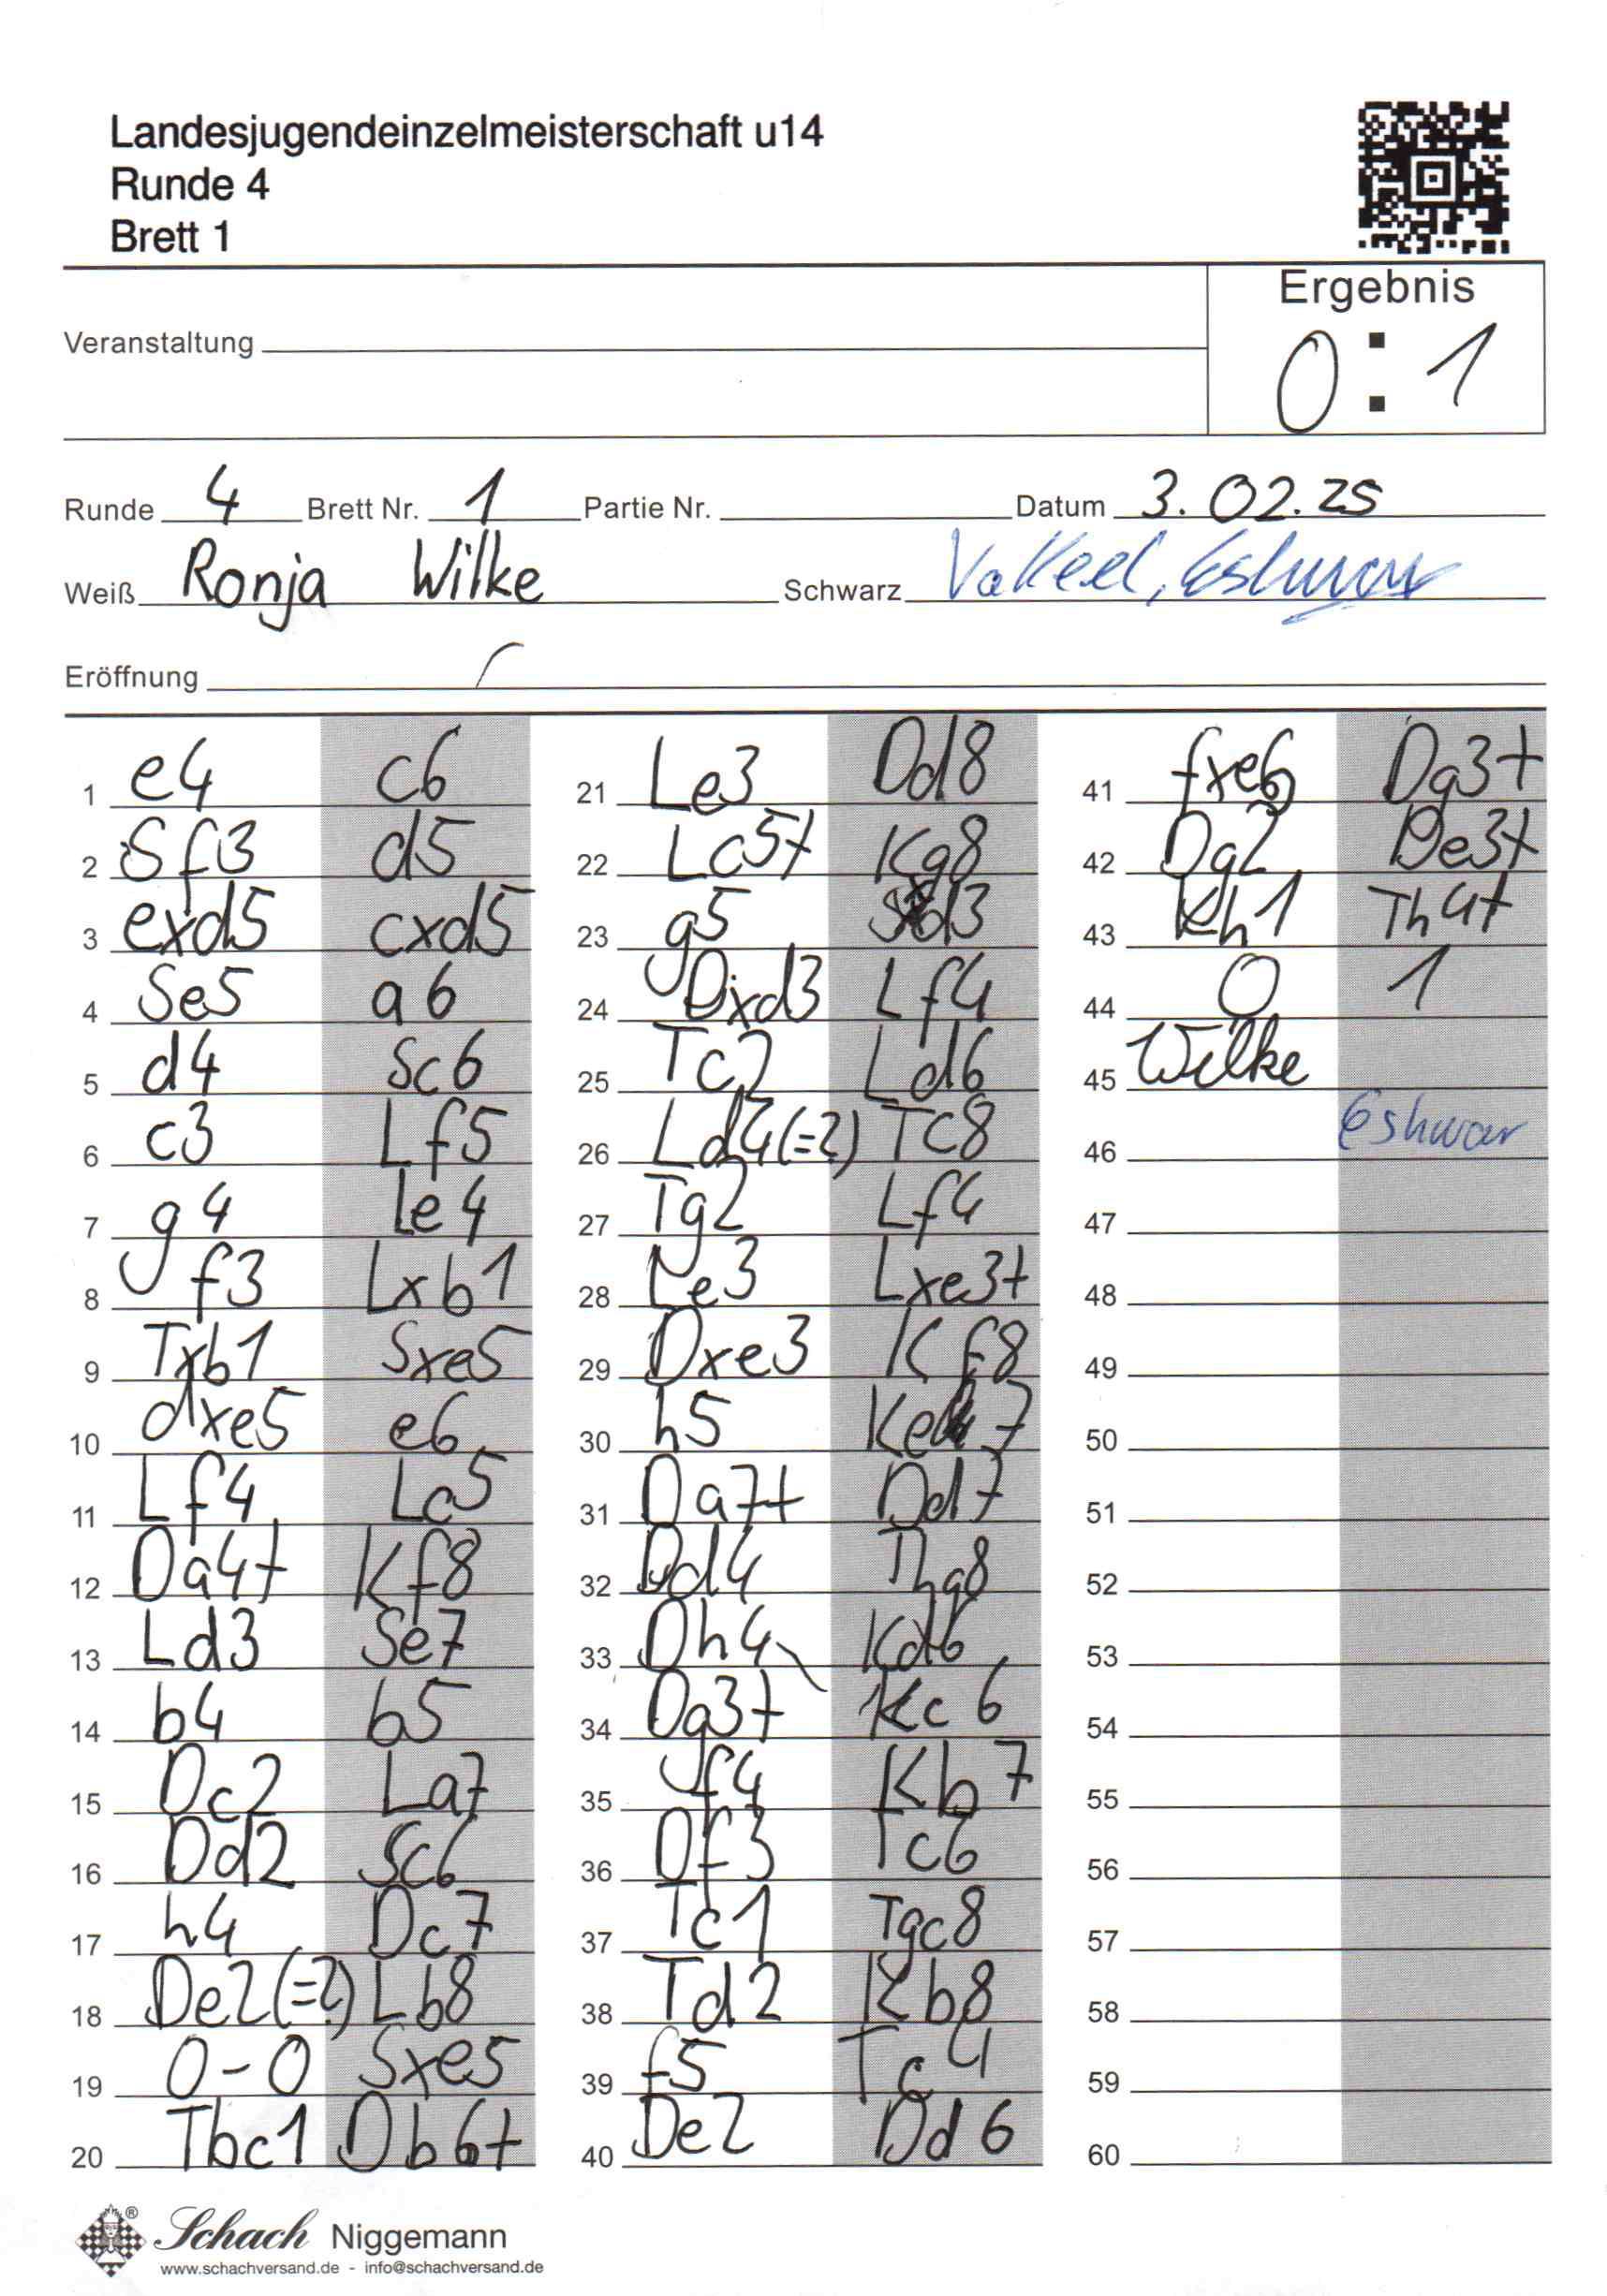 Landesjugendeinzelmeisterschaft u14
Runde 4
Brett 1
Ergebnis
0 : 1
Veranstaltung
Runde 4 Brett Nr. 1 Partie Nr. Datum 3.02.25
Weiß Ronja Wilke Schwarz Vakeel, Eshwar
Eröffnung
1 e4 c6
2 Sf3 d5
3 exd5 cxd5
4 Se5 a6
5 d4 Sc6
6 c3 Lf5
7 g4 Le4
8 f3 Lxb1
9 Txb1 Sxe5
10 dxe5 e6
11 Lf4 Lc5
12 Da4+ Kf8
13 Ld3 Se7
14 b4 b5
15 Dc2 La7
16 Dd2 Sc6
17 h4 Dc7
18 De2(=?) Lb8
19 0-0 Sxe5
20 Tbc1 Db6+
21 Le3 Dd8
22 Lc5+ Kg8
23 g5 Sxd3
24 Dxd3 Lf4
25 Tc2 Ld6
26 Ld4(=?) Tc8
27 Tg2 Lf4
28 Le3 Lxe3+
29 Dxe3 Kf8
30 h5 Ke7
31 Da7+ Dd7
32 Dd4 Thg8
33 Dh4 Kd6
34 Dg3+ Kc6
35 f4 Kb7
36 Df3 Tc6
37 Tc1 Tgc8
38 Td2 Kb8
39 f5 Tc4
40 De2 Dd6
41 fxe6 Dg3+
42 Dg2 De3+
43 Kh1 Th4+
44 0 1
45 Wilke
46 Eshwar
47
48
49
50
51
52
53
54
55
56
57
58
59
60
Schach Niggemann
www.schachversand.de - info@schachversand.de